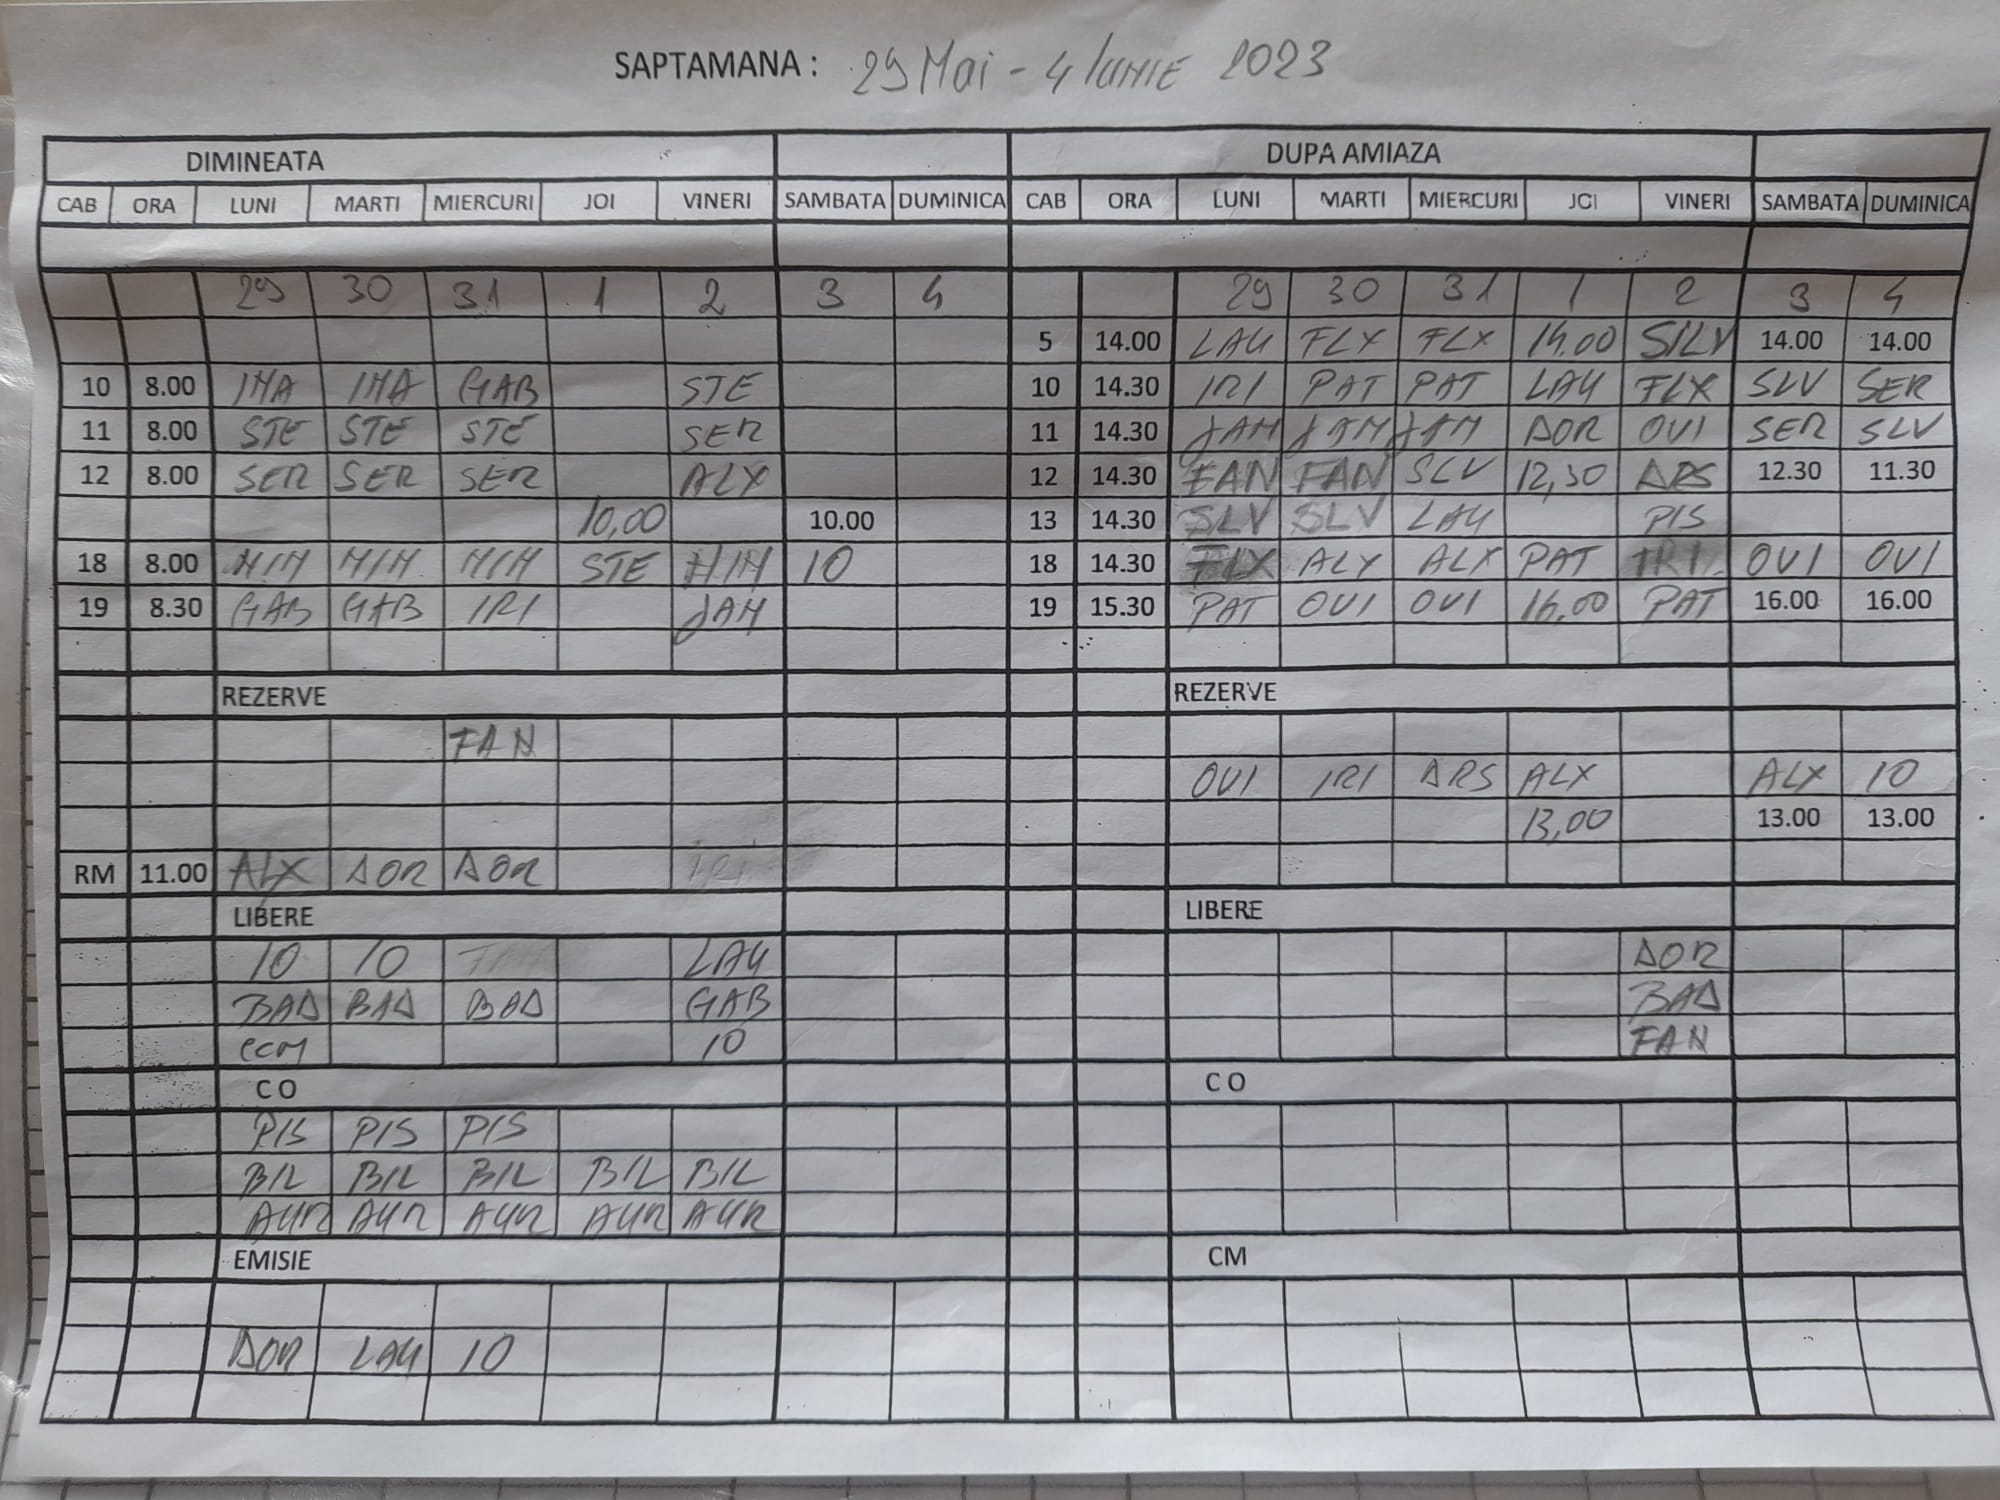 SAPTAMANA : 29 Mai - 4 IUNIE 2023
DIMINEATA DUPA AMIAZA
CAB ORA LUNI MARTI MIERCURI JOI VINERI SAMBATA DUMINICA CAB ORA LUNI MARTI MIERCURI JOI VINERI SAMBATA DUMINICA
29 30 31 1 2 3 4 29 30 31 1 2 3 4
5 14.00 LAU FLX FLX 14.00 SILV 14.00 14.00
10 8.00 IMA IMA GAB STE 10 14.30 IRI PAT PAT LAU FLX SLV SER
11 8.00 STE STE STE SER 11 14.30 JAM JAM JAM DOR OUI SER SLV
12 8.00 SER SER SER ALX 12 14.30 FAN FAN SLV 12,30 DRS 12.30 11.30
10,00 10.00 13 14.30 SLV SLV LAU PIS
18 8.00 MIM MIM MIM STE MIM IO 18 14.30 FLX ALX ALX PAT IRI OUI OUI
19 8.30 GAB GAB IRI JAM 19 15.30 PAT OUI OUI 16.00 PAT 16.00 16.00
REZERVE REZERVE
FAN
OUI IRI DRS ALX ALX IO
13,00 13.00 13.00
RM 11.00 ALX DOR DOR IRI
LIBERE LIBERE
IO IO LAU DOR
BAD BAD BAD GAB BAD
ccm IO FAN
C O C O
PIS PIS PIS
BIL BIL BIL BIL BIL
AUR AUR AUR AUR AUR
EMISIE CM
DOR LAU IO